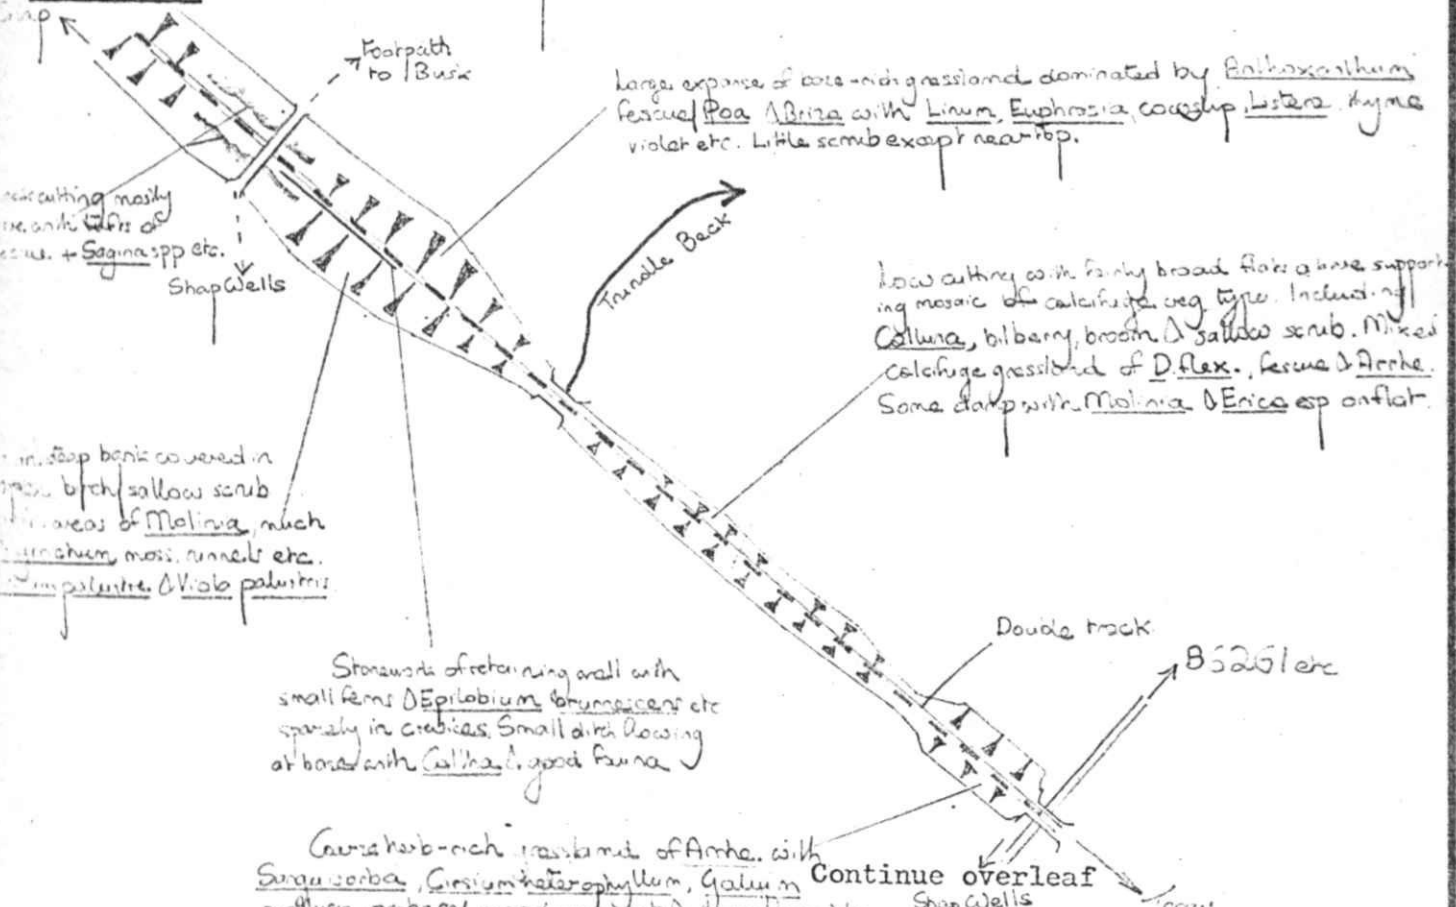 Footpath
to Busk
Large expanse of base-rich grassland dominated by Anthoxanthum
fescue/Poa & Briza with Linum, Euphrasia, cowslip, Listera, thyme
violet etc. Little scrub except near top.
cutting mostly
with tufts of
+ Sagina spp etc.
Shap Wells
Trundle Beck
Low cutting with fairly broad flats above support-
ing mosaic of calcifuge veg. type. Including
Calluna, bilberry, broom & sallow scrub. Mixed
calcifuge grassland of D. flex., fescue & Arrhe.
Some damp with Molinia & Erica esp on flat.
steep bank covered in
birch/sallow scrub
areas of Molinia, much
moss, runnels etc.
palustre & Viola palustris
Stonework of retaining wall with
small ferns & Epilobium brunnescens etc
sparsely in crevices. Small ditch flowing
at base with Caltha & good fauna
Double track
B6261 etc
Coarse herb-rich grassland of Arrhe. with
Sanguisorba, Cirsium heterophyllum, Galium
Continue overleaf
Shap Wells